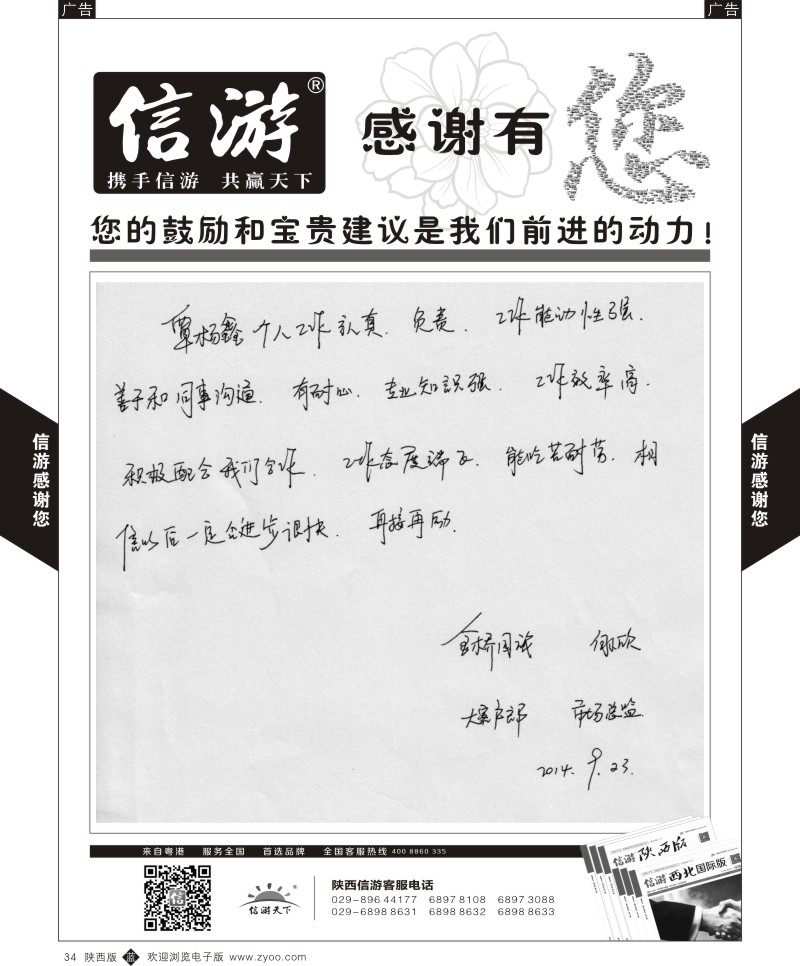 广告
广告
信游®
携手信游 共赢天下
感谢有
您
您的鼓励和宝贵建议是我们前进的动力!
覃杨鑫个人工作认真、负责、工作能动性强、
善于和同事沟通、有耐心、专业知识强、工作效率高、
积极配合我们合作、工作态度端正、能吃苦耐劳、相
信以后一定会进步很快、再接再励、
金桥国旅
大客户部 市场总监
2014. 9. 23.
信游感谢您
信游感谢您
来自粤港 服务全国 首选品牌 全国客服热线 400 8860 335
信游
信游天下®
陕西信游客服电话
029-896 44177 6897 8108 6897 3088
029-6898 8631 6898 8632 6898 8633
信游 陕西版
信游 西北国际版
34 陕西版 蓝 欢迎浏览电子版 www.zyoo.com